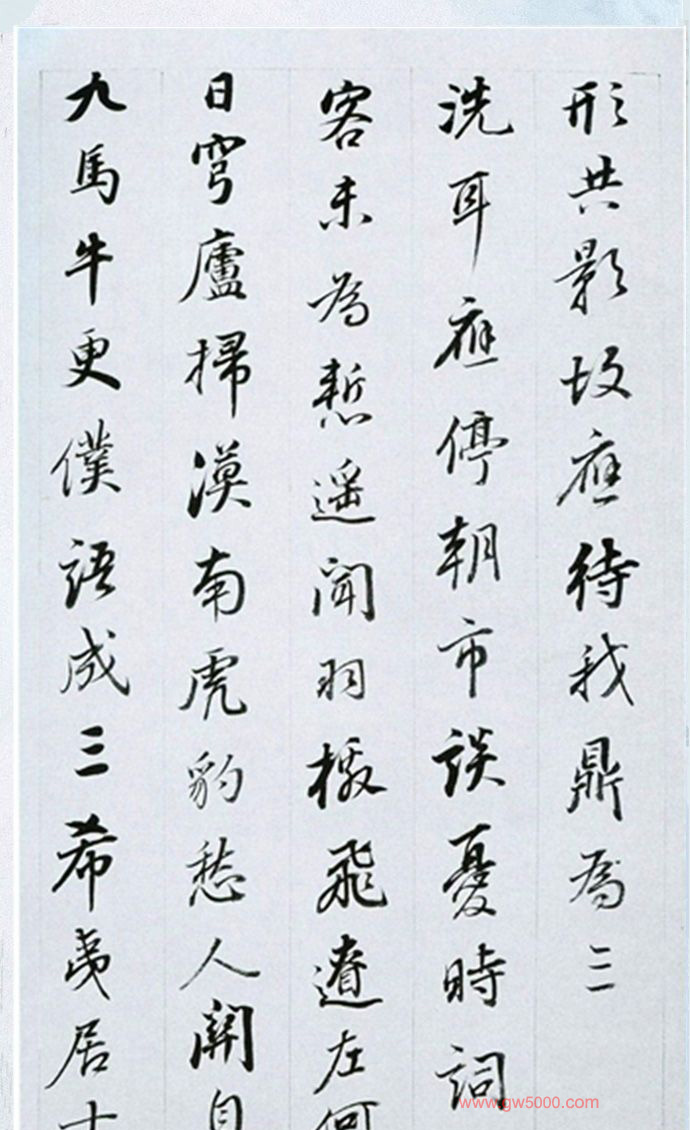 形共影故應待我鼎為三
洗耳應停朝市談憂時詞
客未為慙遥聞羽檄飛遼左何
日穹廬掃漠南虎豹愁人關自
九馬牛更僕語成三希夷居士
www.gw5000.com